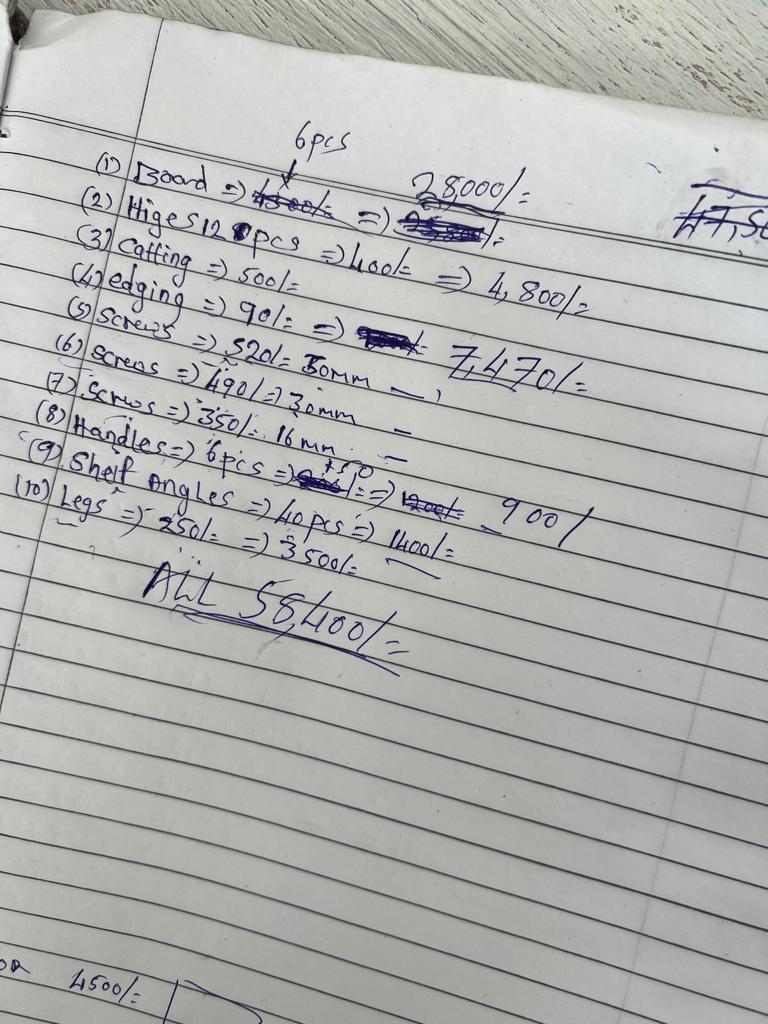 6pcs
(1) Board => 4500/= => 28000/=
(2) Higes 12 pcs => 400/= => 4,800/=
(3) Catting => 500/=
(4) edging => 90/= => 7,470/=
(5) Screws => 520/= 50mm
(6) Screns => 490/= 30mm
(7) Scrwos => 350/= 16mm
(8) Handles => 6pcs => 150 /= => 1200/= 900/
(9) Shelf Angles => 40pcs => 1400/=
(10) Legs => 250/= => 3500/=
ALL 58,400/=
4500/=